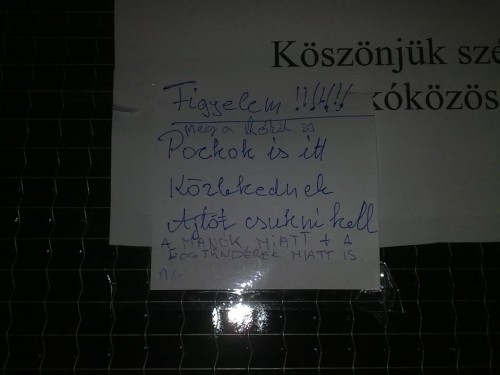 Köszönjük szé
kóközös
Figyelem !!!!!!
még a
Pockok is itt
Közlekednek
Ajtót csukni kell
A MANÓK MIATT + A
FOGTÜNDÉREK MIATT IS.